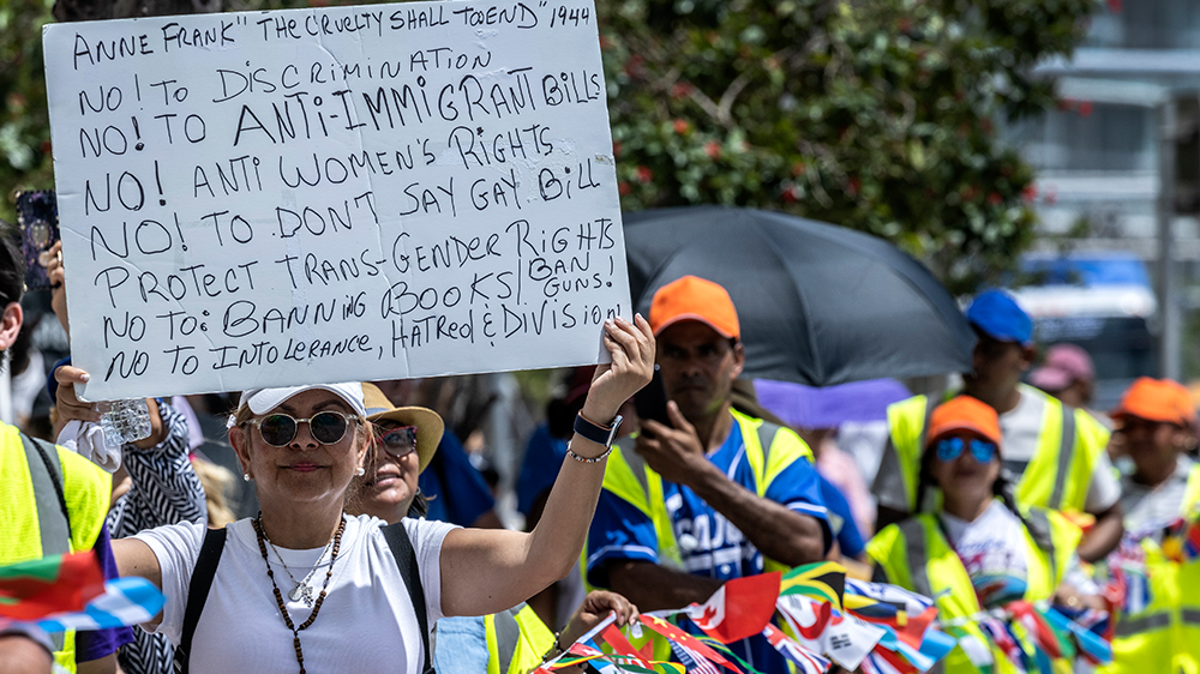 ANNE FRANK "THE CRUELTY SHALL TOO END" 1944
NO! TO DISCRIMINATION
NO! TO ANTI-IMMIGRANT BILLS
NO! ANTI WOMEN'S RIGHTS
NO! TO DON'T SAY GAY BILL
PROTECT TRANS-GENDER RIGHTS
NO TO: BANNING BOOKS/BAN GUNS!
NO TO INTOLERANCE, HATRED & DIVISION